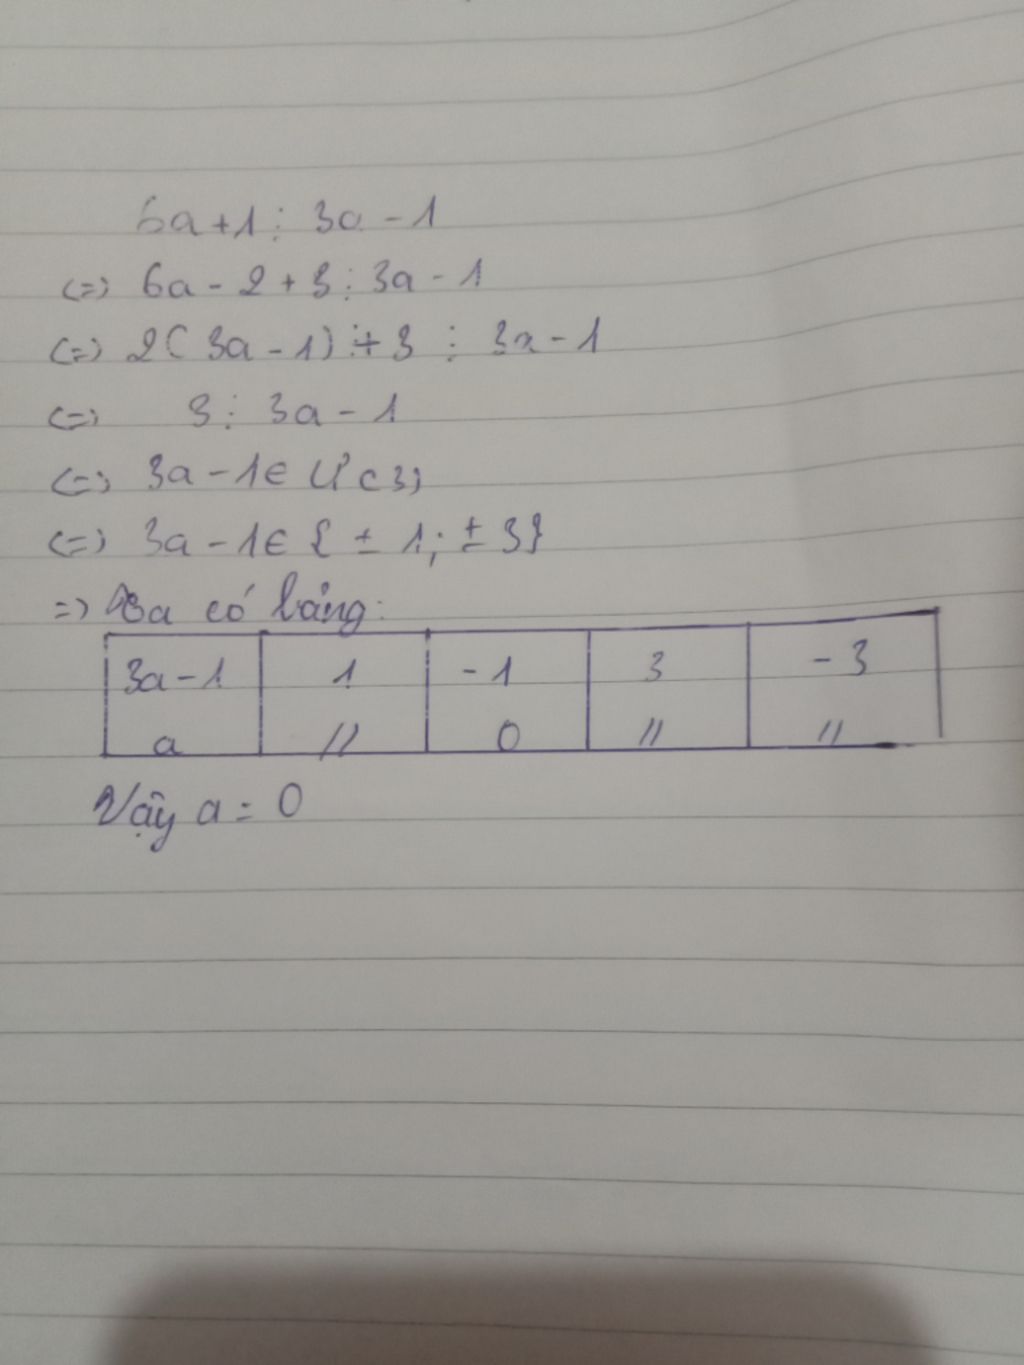 6a+1 ⋮ 3a - 1
<=> 6a - 2 + 3 ⋮ 3a - 1
<=> 2( 3a - 1) + 3 ⋮ 3a - 1
<=> 3 ⋮ 3a - 1
<=> 3a - 1 ∈ Ư(3)
<=> 3a - 1 ∈ { ± 1; ± 3}
=> ta có bảng:
3a - 1 1 - 1 3 - 3
a // 0 // //
Vậy a = 0